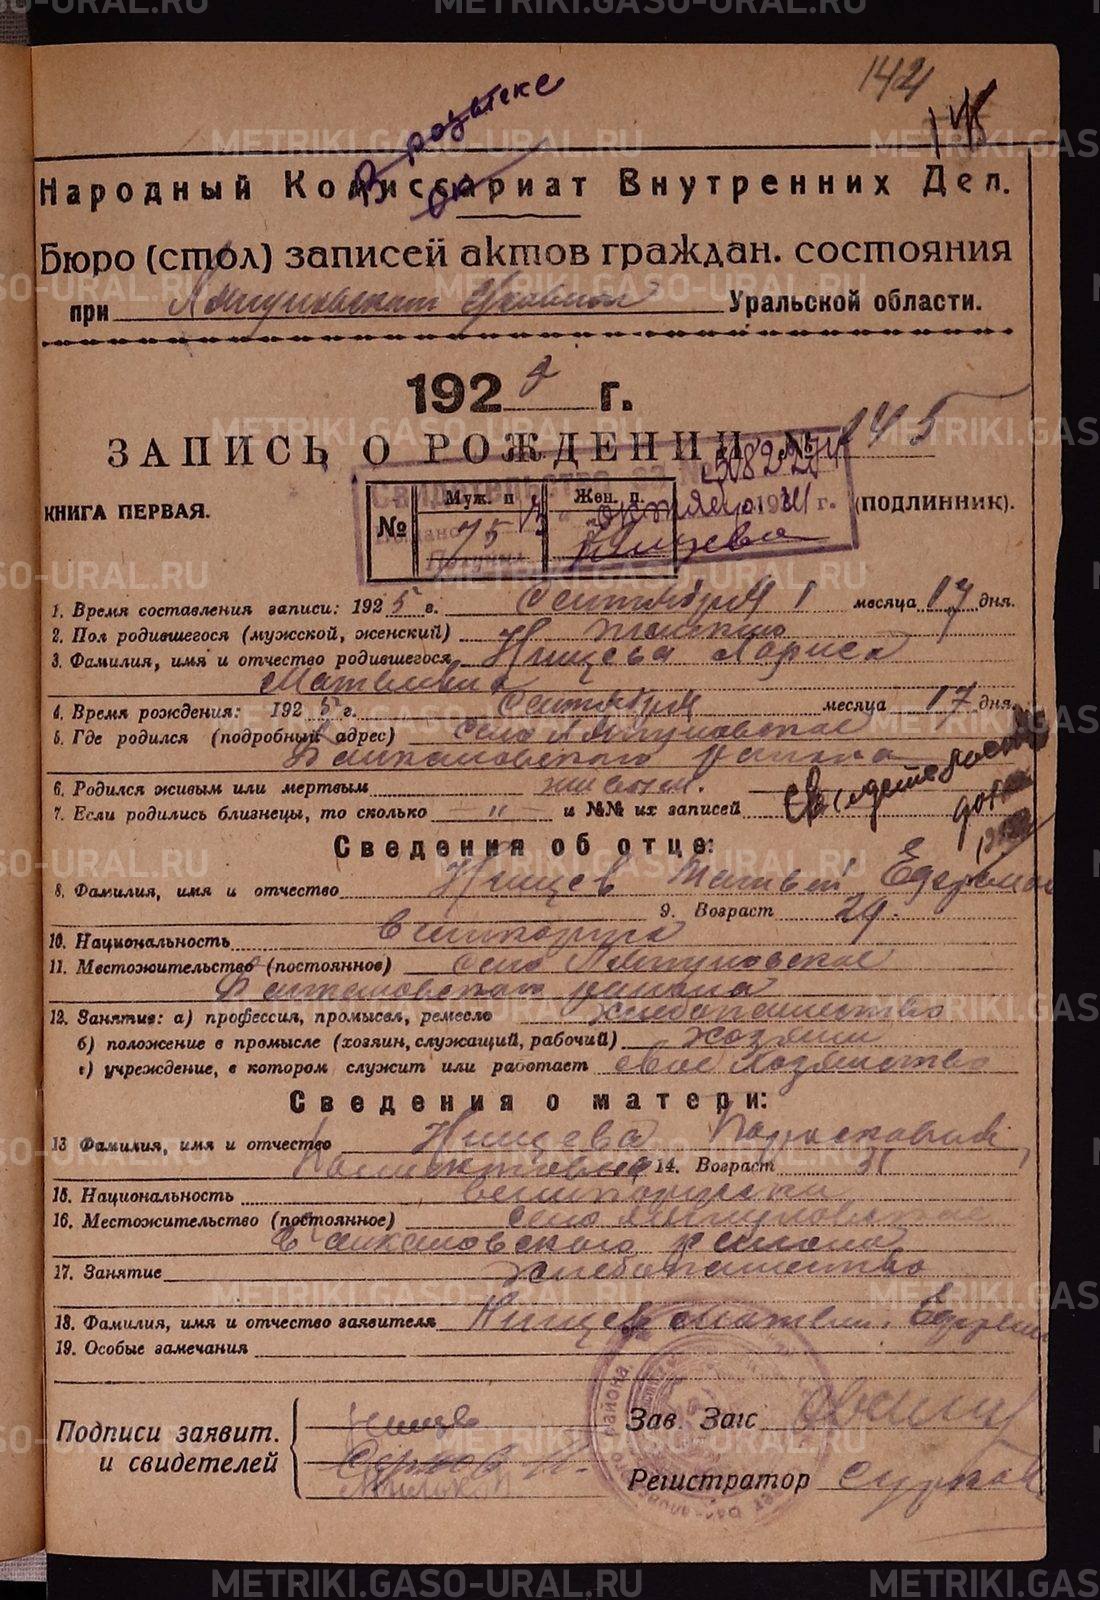 142
В розыске
Народный Комиссариат Внутренних Дел.
Бюро (стол) записей актов граждан. состояния
при Уральской области.
192 г.
ЗАПИСЬ О РОЖДЕНИИ № 145
КНИГА ПЕРВАЯ.
№ Муж. п Жен. п.
75
октября 1941 г.
(ПОДЛИННИК).
1. Время составления записи: 1925 г. Сентября месяца 17 дня.
2. Пол родившегося (мужской, женский) Женский
3. Фамилия, имя и отчество родившегося Нищева Лариса
Матвеевна
4. Время рождения: 1925 г. Сентября месяца 17 дня.
5. Где родился (подробный адрес) село Ляпуновское
Байкаловского района
6. Родился живым или мертвым живым.
7. Если родились близнецы, то сколько — " — и №№ их записей
Сведения об отце:
8. Фамилия, имя и отчество Нищев Матвей Ефремов
9. Возраст 29.
10. Национальность
11. Местожительство (постоянное) село Ляпуновское
Байкаловского района
12. Занятие: а) профессия, промысел, ремесло хлебопашество
б) положение в промысле (хозяин, служащий, рабочий) хозяин
в) учреждение, в котором служит или работает свое хозяйство
Сведения о матери:
13 Фамилия, имя и отчество Нищева Парасковия
14. Возраст 31
15. Национальность
16. Местожительство (постоянное) село Ляпуновское
Байкаловского района
17. Занятие хлебопашество
18. Фамилия, имя и отчество заявителя Нищев Матвей Ефрем
19. Особые замечания
Подписи заявит.
и свидетелей
Нищев
Зав. Загс
Регистратор Сурков
METRIKI.GASO-URAL.RU